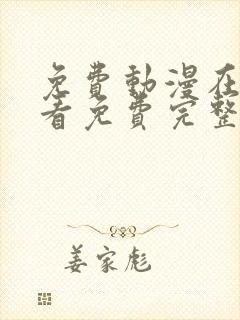 免費動漫在
看免費完整
姜家彪